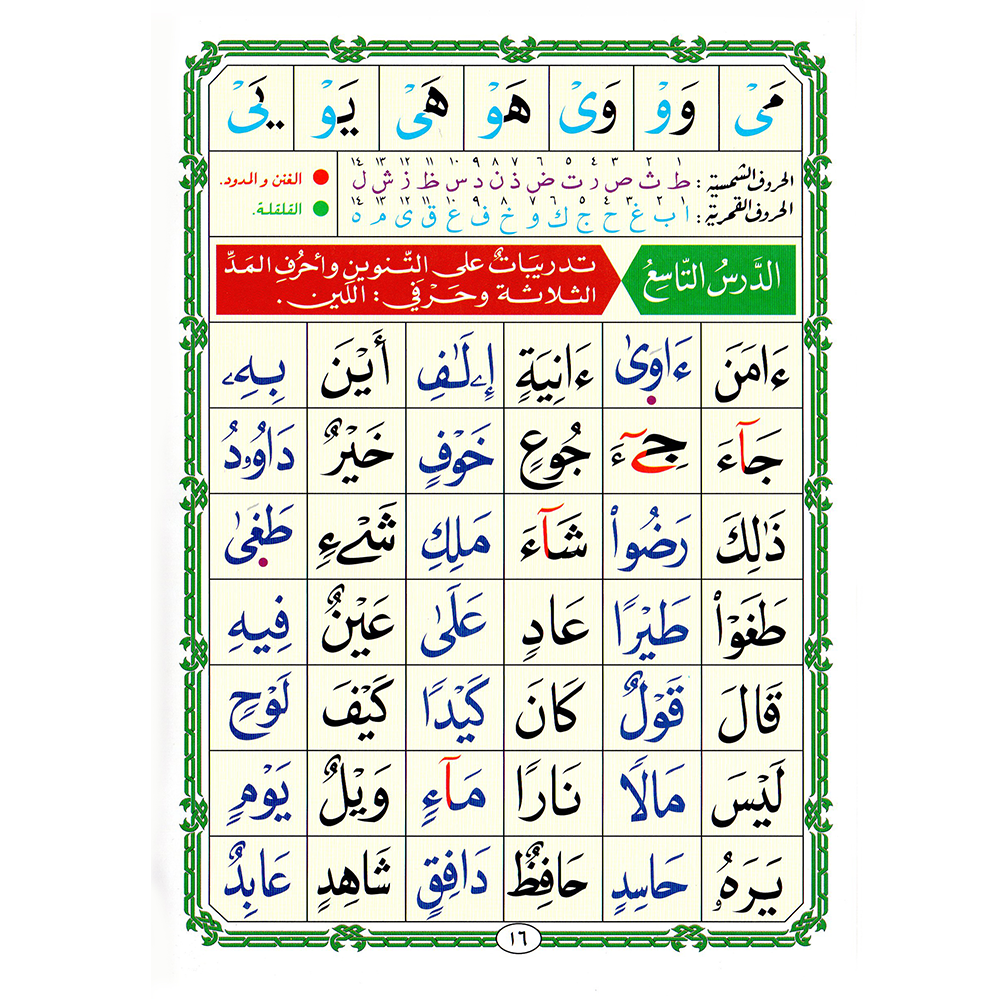 مَىْ وَوْ وَىْ هَوْ هَىْ يَوْ يَىْ
١ ٢ ٣ ٤ ٥ ٦ ٧ ٨ ٩ ١٠ ١١ ١٢ ١٣ ١٤
الحروف الشمسية : ط ث ص ر ت ض ذ ن د س ظ ز ش ل
الغنن و المدود.
١ ٢ ٣ ٤ ٥ ٦ ٧ ٨ ٩ ١٠ ١١ ١٢ ١٣ ١٤
الحروف القمرية : ا ب غ ح ج ك و خ ف ع ق ى م ه
القلقلة.
الدَّرسُ التَّاسِعُ
تدريبَاتٌ على التَّنوين وأحرُفِ المَدِّ
الثلاثة وحَرْفَي : اللين .
ءَامَنَ ءَاوَىٰ ءَانِيَةٍ إِۦلَٰفِ أَيْنَ بِهِۦ
جَآءَ جِيٓءَ جُوعٍ خَوْفٍ خَيْرٌ دَاوُۥدُ
ذَٰلِكَ رَضُواْ شَآءَ مَلِكِ شَىْءٍ طَغَىٰ
طَغَوْاْ طَيْرًا عَادٍ عَلَىٰ عَيْنٌ فِيهِ
قَالَ قَوْلٌ كَانَ كَيْدًا كَيْفَ لَوْحٍ
لَيْسَ مَالًا نَارًا مَآءٍ وَيْلٌ يَوْمٍ
يَرَهُۥ حَاسِدٍ حَافِظٌ دَافِقٍ شَاهِدٍ عَابِدٌ
١٦